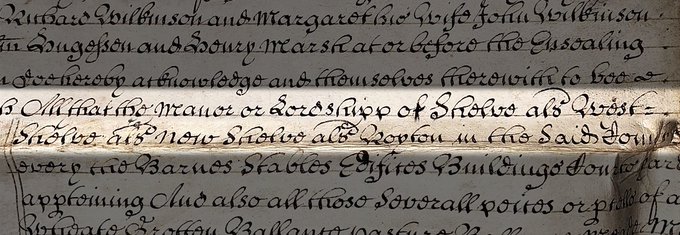 Richard Wilkinson and Margaret his Wife John Wilkinson
Hugessen and Henry Marsh at or before the Ensealing
Doe hereby acknowledge and themselves therewith to bee
All that the Manor or Lordshipp of Shelve als West-
Shelve als New Shelve als Boyton in the Said
every the Barnes Stables Edifices Buildings
apperteining And also all those Severall peices or of a
pasture